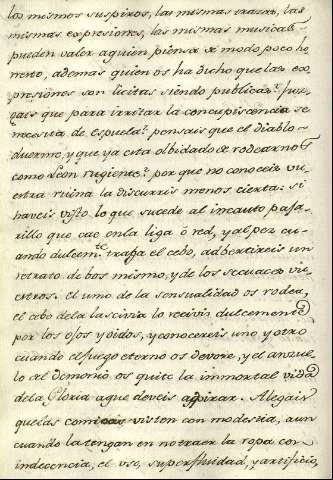 los mismos suspiros, las mismas frases, las
mismas expresiones, las mismas musicas
pueden valer aguien piensa de modo poco ho
nesto, ademas quien os ha dicho que las ex
presiones son licitas siendo publicas? Juz
gais que para irritar la concupiscencia se
necesita de espuela? pensais que el diablo
duerme, y que ya esta olbidado de rodearnos
como Leon rugiente? por que no conoceis vu
estra ruina la discurris menos cierta. si
haveis visto lo que sucede al incauto paja
rillo que cae enla liga ò red, y al pez cu
ando dulcemte. traga el cebo, adbertireis un
retrato de bos mismo, y de los secuaces vu
estros. el umo de la sensualidad os rodea,
el cebo de la lascivia lo recivis dulcemente
por los ojos y oidos, y conocereis uno y otro
cuando el fuego eterno os devore, y el anzue
lo del demonio os quite la immortal vida
dela Gloria aque deveis aspirar. Alegais
que las comicas visten con modestia, aun
cuando la tengan en no traer la ropa con
indecencia, el uso, superfluidad, y artificio,